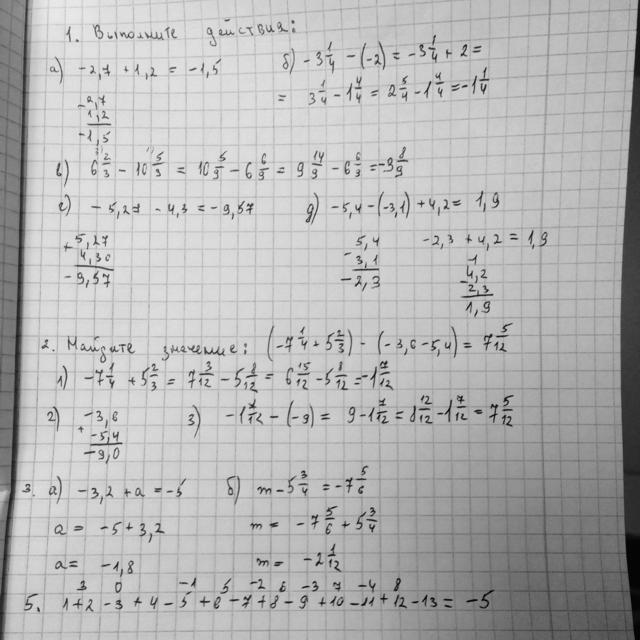 1. Выполните действия:
а) -2,7 + 1,2 = -1,5
- 2,7
1,2
-1,5
б) -3 1/4 - (-2) = -3 1/4 + 2 =
= 3 1/4 - 1 4/4 = 2 5/4 - 1 4/4 = -1 1/4
в) 6 2/3 - 10 5/9 = 10 5/9 - 6 6/9 = 9 14/9 - 6 6/9 = -3 8/9
г) -5,27 - 4,3 = -9,57
+ 5,27
4,30
-9,57
д) -5,4 - (-3,1) + 4,2 = 1,9
- 5,4
3,1
-2,3
-2,3 + 4,2 = 1,9
- 4,2
2,3
1,9
2. Найдите значение: (-7 1/4 + 5 2/3) - (-3,6 - 5,4) = 7 5/12
1) -7 1/4 + 5 2/3 = 7 3/12 - 5 8/12 = 6 15/12 - 5 8/12 = -1 7/12
2) -3,6
+ -5,4
-9,0
3) -1 7/12 - (-9) = 9 - 1 7/12 = 8 12/12 - 1 7/12 = 7 5/12
3. а) -3,2 + a = -5
a = -5 + 3,2
a = -1,8
б) m - 5 3/4 = -7 5/6
m = -7 5/6 + 5 3/4
m = -2 1/12
3 0 -1 5 -2 6 -3 7 -4 8
5. 1 + 2 - 3 + 4 - 5 + 6 - 7 + 8 - 9 + 10 - 11 + 12 - 13 = -5